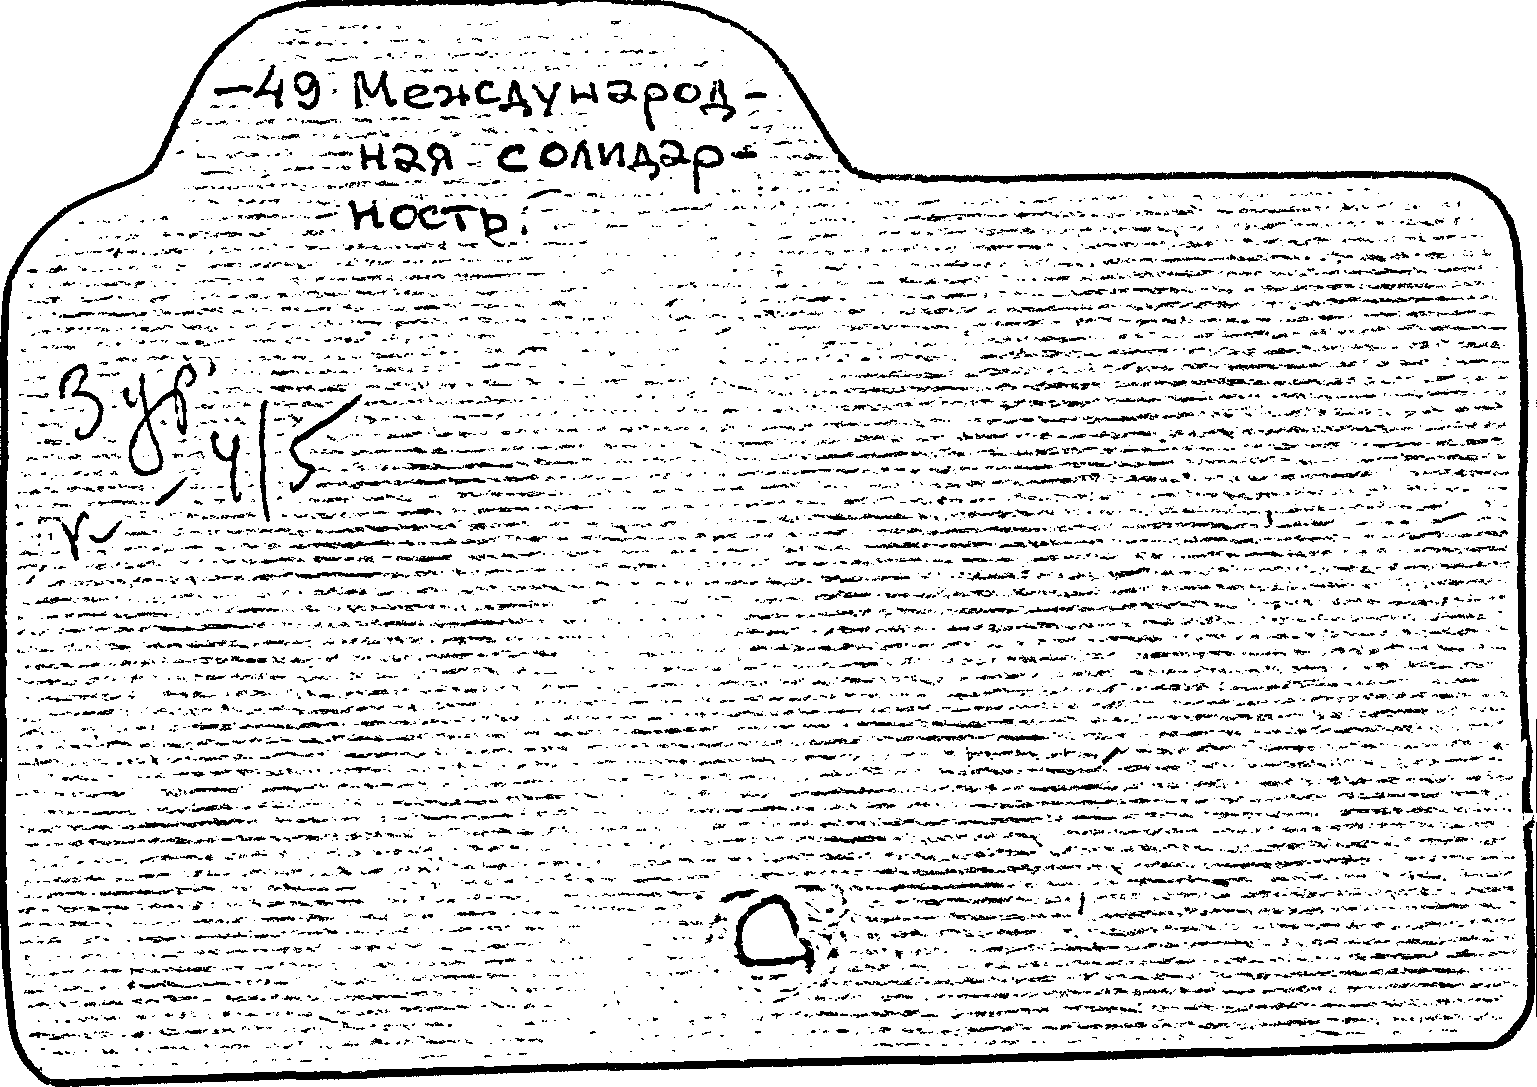 -49 Международ-
ная солидар-
ность.
3 ур.
4/5